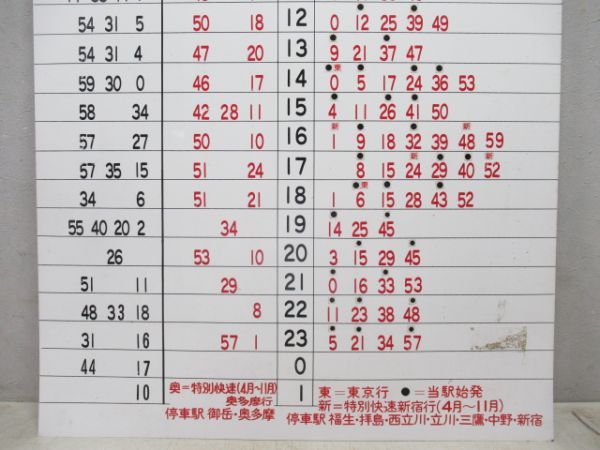 54 31 5 50 18 12 0 12 25 39 49
54 31 4 47 20 13 9 21 37 47
59 30 0 46 17 14 ●0東 ●5 17 ●24 ●36 53
58 34 42 28 11 15 ●4 11 ●26 ●41 50
57 27 50 10 16 1新 ●9 18 ●32 39 48新 59
57 35 15 51 24 17 ●8 15 24新 ●29 ●40 52新
34 6 51 21 18 1 ●6東 ●15 28 ●43 52
55 40 20 2 34 19 ●14 25 ●45
26 53 10 20 3 ●15 29 ●45
51 11 29 21 ●0 16 ●33 53
48 33 18 8 22 ●11 ●23 38 ●48
31 16 57 1 23 ●5 ●21 34 ●57
44 17 0
10 1
奥=特別快速(4月~11月)
奥多摩行
停車駅 御岳・奥多摩
東=東京行 ●=当駅始発
新=特別快速新宿行(4月~11月)
停車駅 福生・拝島・西立川・立川・三鷹・中野・新宿